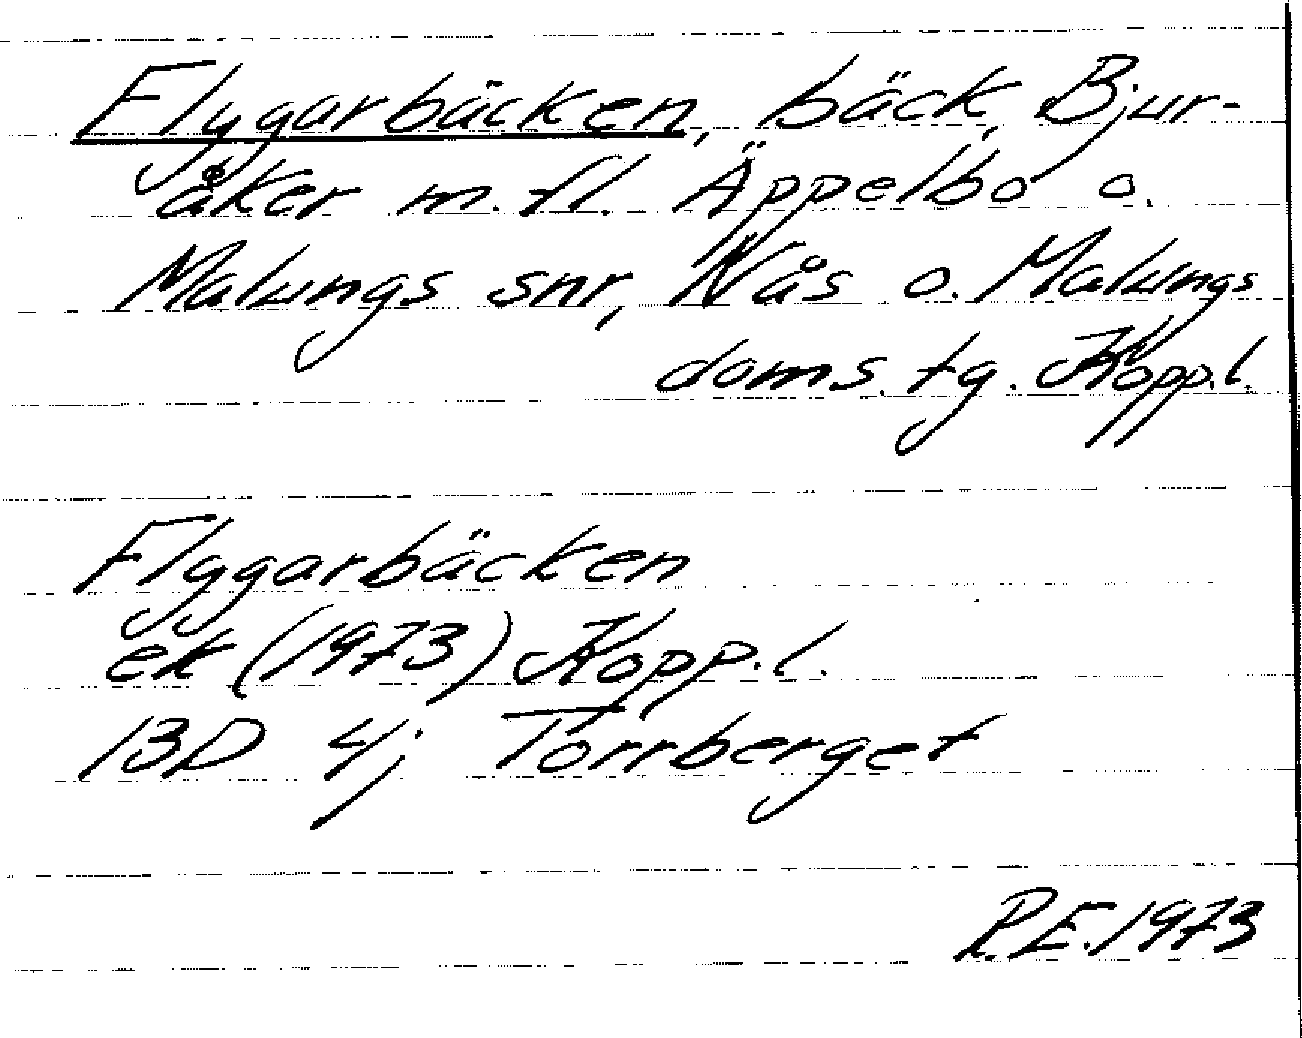 Flyggarbäcken, bäck, Bjur-
åker m.fl. Äppelbo o.
Malungs snr, Nås o. Malungs
doms. tg. Kopp.l.
Flyggarbäcken
ek (1973) Kopp.l.
13D 4j Torrberget
R.E. 1973